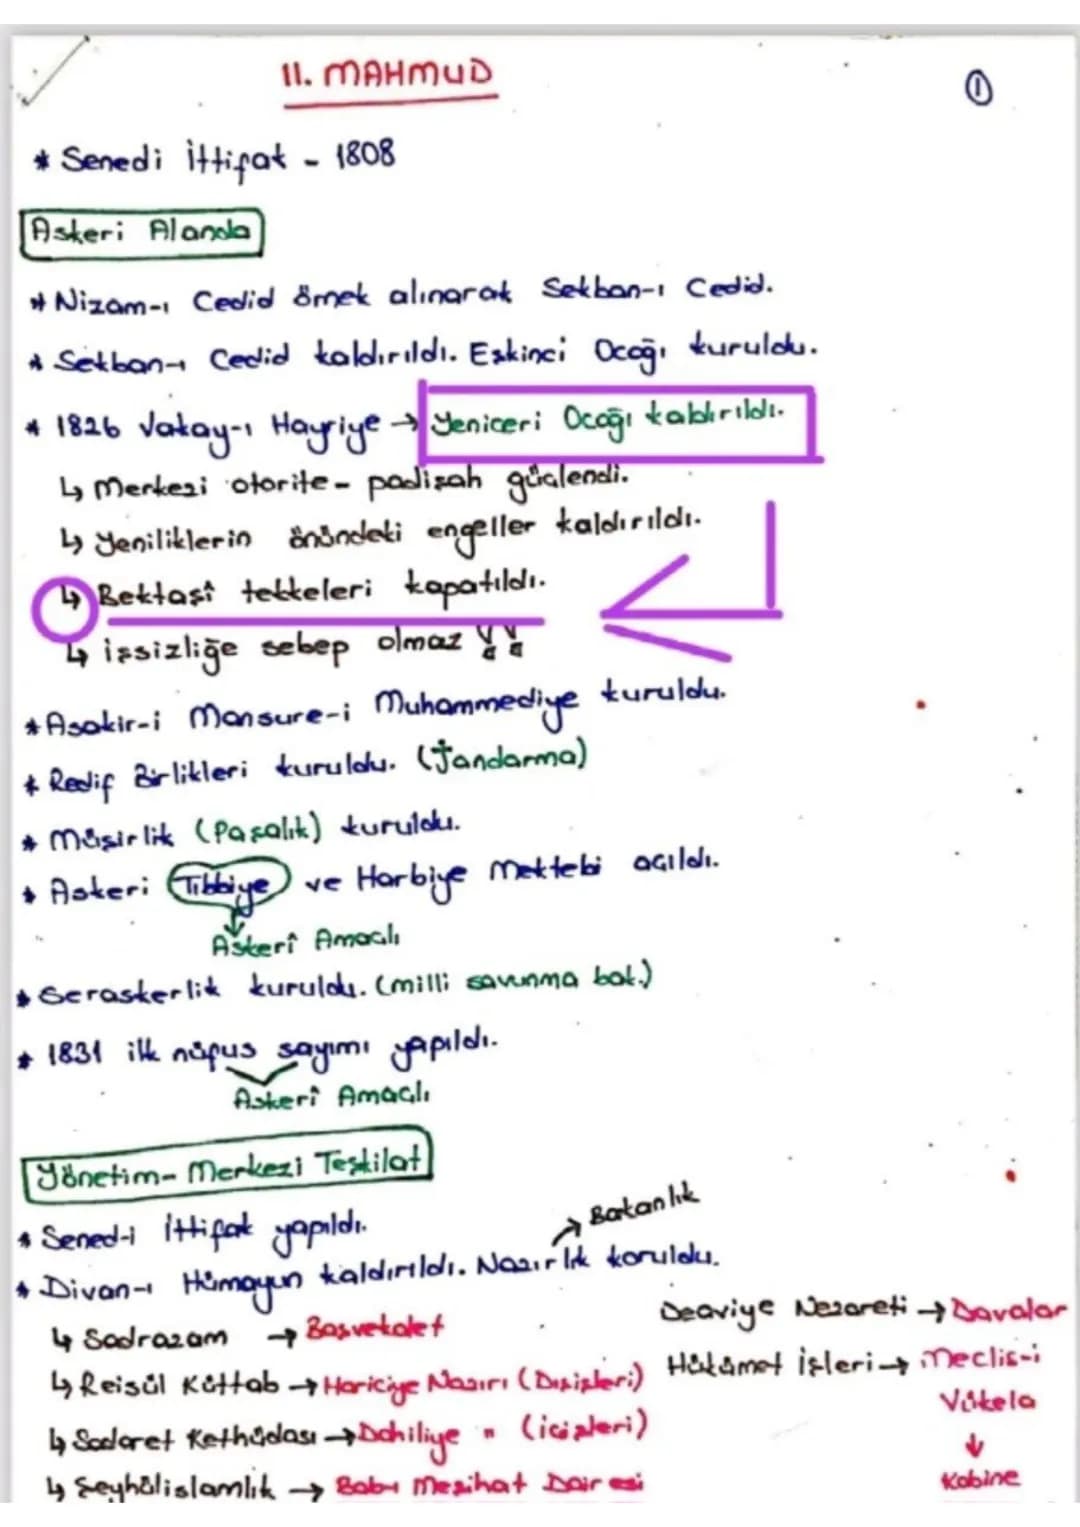 II. MAHMUD
1
* Senedi İttifak - 1808
Askeri Alanda
* Nizam-ı Cedid örnek alınarak Sekban-ı Cedid.
* Sekban-ı Cedid kaldırıldı. Eskinci Ocağı kuruldu.
* 1826 Vakay-ı Hayriye → Yeniçeri Ocağı kaldırıldı.
↳ Merkezi otorite - padişah güçlendi.
↳ Yeniliklerin önündeki engeller kaldırıldı.
↳ Bektaşî tekkeleri kapatıldı.
↳ işsizliğe sebep olmaz !!
* Asakir-i Mansure-i Muhammediye kuruldu.
* Redif Birlikleri kuruldu. (Jandarma)
* Müşirlik (Paşalık) kuruldu.
* Askeri Tıbbiye ve Harbiye Mektebi açıldı.
Askerî Amaçlı
* Seraskerlik kuruldu. (milli savunma bak.)
* 1831 ilk nüfus sayımı yapıldı.
Askerî Amaçlı
Yönetim - Merkezi Teşkilat
* Sened-i İttifak yapıldı.
→ Bakanlık
* Divan-ı Hümayun kaldırıldı. Nazırlık koruldu.
↳ Sadrazam → Başvekalet
Deaviye Nezareti → Davalar
↳ Reisül Küttab → Hariciye Nazırı (Dışişleri)
Hükümet İşleri → Meclis-i Vükela
↓
Kabine
↳ Sadaret Kethüdası → Dahiliye " (içişleri)
↳ Şeyhülislamlık → Bab-ı Meşihat Dairesi